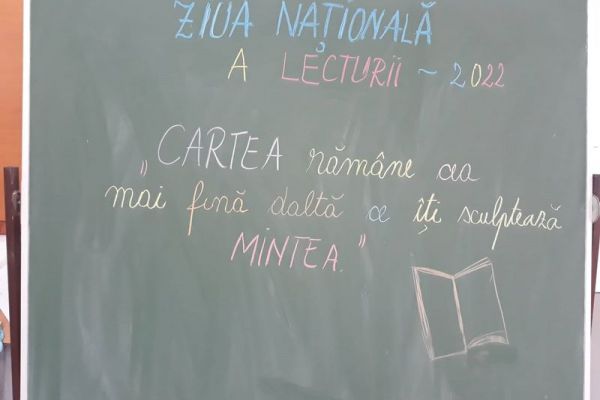 ZIUA NAȚIONALĂ
A LECTURII ~ 2022
„CARTEA rămâne cea
mai fină daltă ce îți sculptează
MINTEA."